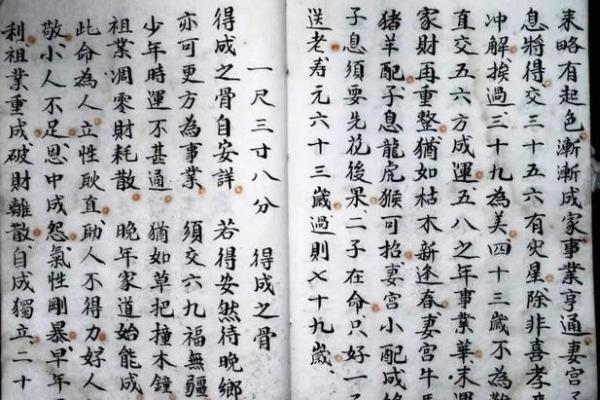 來略有起色漸漸成家事業亨通妻宮子
息將得交三十五六有灾星除非喜孝來
冲解挨過三十九為美四十三歲不為難
直交五六方成運五八之年事業華末運
家財再重整猶如枯木新逢春妻宮牛馬
猪羊配子息龍虎猴可招妻宮小配成
子息須要先花後果二子在命只好一子
送老寿元六十三歲過則乂十九歲
一尺三寸八分 得成之骨
得成之骨自安詳 若得安然待晚鄉
亦可更方為事業 須交六九福無疆
少年時運不甚通 猶如草把撞木鐘
祖業凋零財耗散 晚年家道始能成
此命為人立性耿直助人不得力好人
敬小人不足恩中成怨氣性剛暴早年
利祖業重成破財離散自成獨立二十